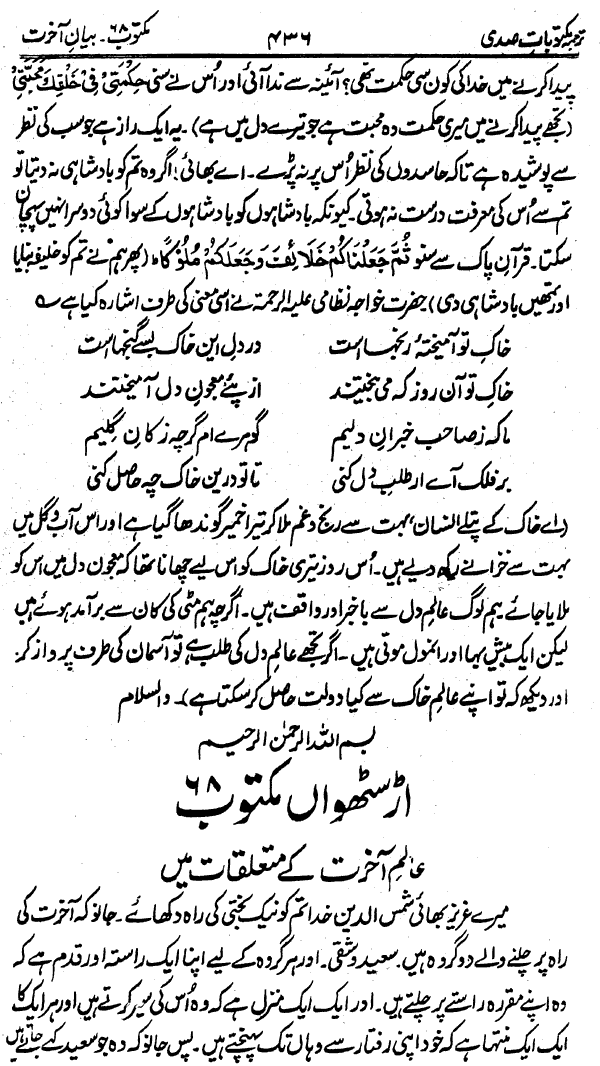 ترجمہ مکتوبات صدی ۴۳۶ مکتوب ۶۸۔ بیانِ آخرت
پیدا کرنے میں خدا کی کون سی حکمت تھی؟ آئینہ سے ندا آئی اور اُس نے سنی حِکْمَتِیْ فِیْ خَلْقِكَ مُحَبَّتِیْ
(تجھے پیدا کرنے میں میری حکمت وہ محبت ہے جو تیرے دل میں ہے)۔ یہ ایک راز ہے جو سب کی نظر
سے پوشیدہ ہے تاکہ حاسدوں کی نظر اُس پر نہ پڑے۔ اے بھائی! اگر وہ تم کو بادشاہی نہ دیتا تو
تم سے اُس کی معرفت درست نہ ہوتی۔ کیونکہ بادشاہوں کو بادشاہوں کے سوا کوئی دوسرا نہیں پہچان
سکتا۔ قرآنِ پاک سے سنو ثُمَّ جَعَلْنَاکُمْ خَلَائِفَ وَجَعَلَکُمْ مُلُوْکًا ہ (پھر ہم نے تم کو خلیفہ بنایا
اور تمھیں بادشاہی دی) حضرت خواجہ نظامی علیہ الرحمۃ نے اسی معنی کی طرف اشارہ کیا ہے ؎
خاکِ تو آمیختۂ رنجہاست در دلِ این خاک بسے گنجہاست
خاکِ تو آن روز کہ می بیختند از پئے معجونِ دل آمیختند
ما کہ ز صاحب خبرانِ دلیم گوہرے ام گرچہ ز کانِ گِلیم
بر فلک آے ار طلبِ دل کنی تا تو درین خاک چہ حاصل کنی
(اے خاک کے پتلے انسان، بہت سے رنج و غم ملا کر تیرا خمیر گوندھا گیا ہے اور اس آب و گل میں
بہت سے خزانے رکھ دیے ہیں۔ اُس روز تیری خاک کو اس لیے چھانا تھا کہ معجونِ دل میں اس کو
ملایا جائے۔ ہم لوگ عالمِ دل سے باخبر اور واقف ہیں۔ اگرچہ ہم مٹی کی کان سے برآمد ہوئے ہیں
لیکن ایک بیش بہا اور انمول موتی ہیں۔ اگر تجھے عالمِ دل کی طلب ہے تو آسمان کی طرف پرواز کر
اور دیکھ کہ تو اپنے عالمِ خاک سے کیا دولت حاصل کر سکتا ہے)۔ والسلام
بسم اللہ الرحمٰن الرحیم
اڑسٹھواں مکتوب ۶۸
عالمِ آخرت کے متعلقات میں
میرے عزیز بھائی شمس الدین خدا تم کو نیک بختی کی راہ دکھائے۔ جانو کہ آخرت کی
راہ پر چلنے والے دو گروہ ہیں۔ سعید و شقی۔ اور ہر گروہ کے لیے اپنا ایک راستہ اور قدم ہے کہ
وہ اپنے مقررہ راستے پر چلتے ہیں۔ اور ایک ایک منزل ہے کہ وہ اُس کی سیر کرتے ہیں اور ہر ایک کا
ایک ایک منتہا ہے کہ خود اپنی رفتار سے وہاں تک پہنچتے ہیں۔ پس جانو کہ وہ جو سعید کہے جاتے ہیں